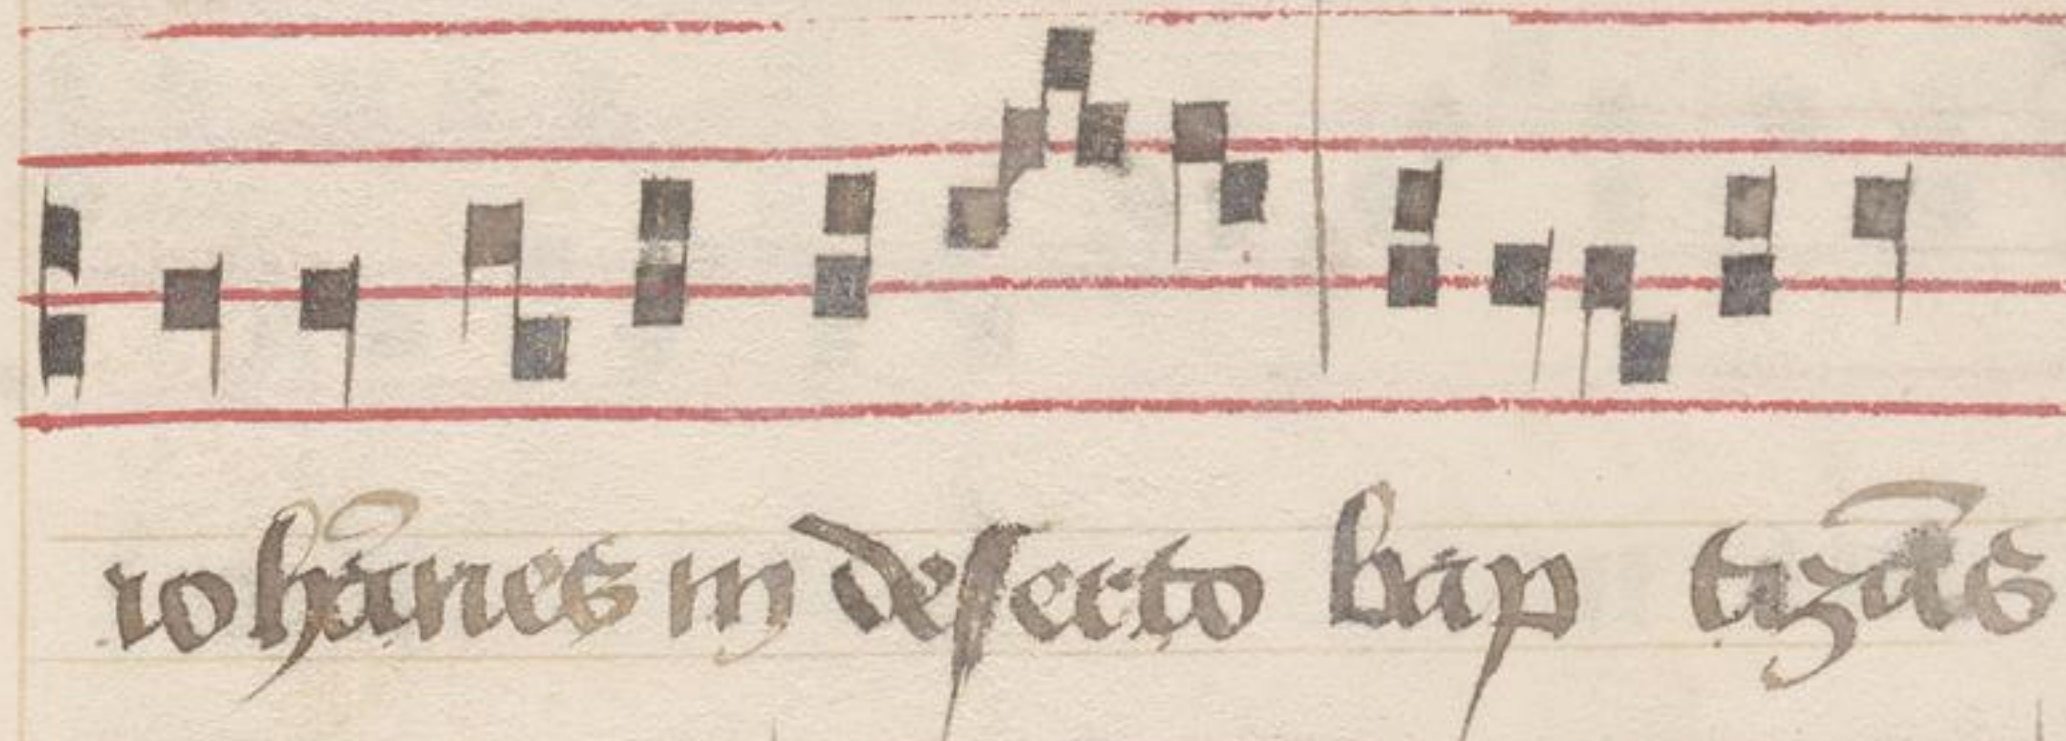 iohānes in deserto bap tizās